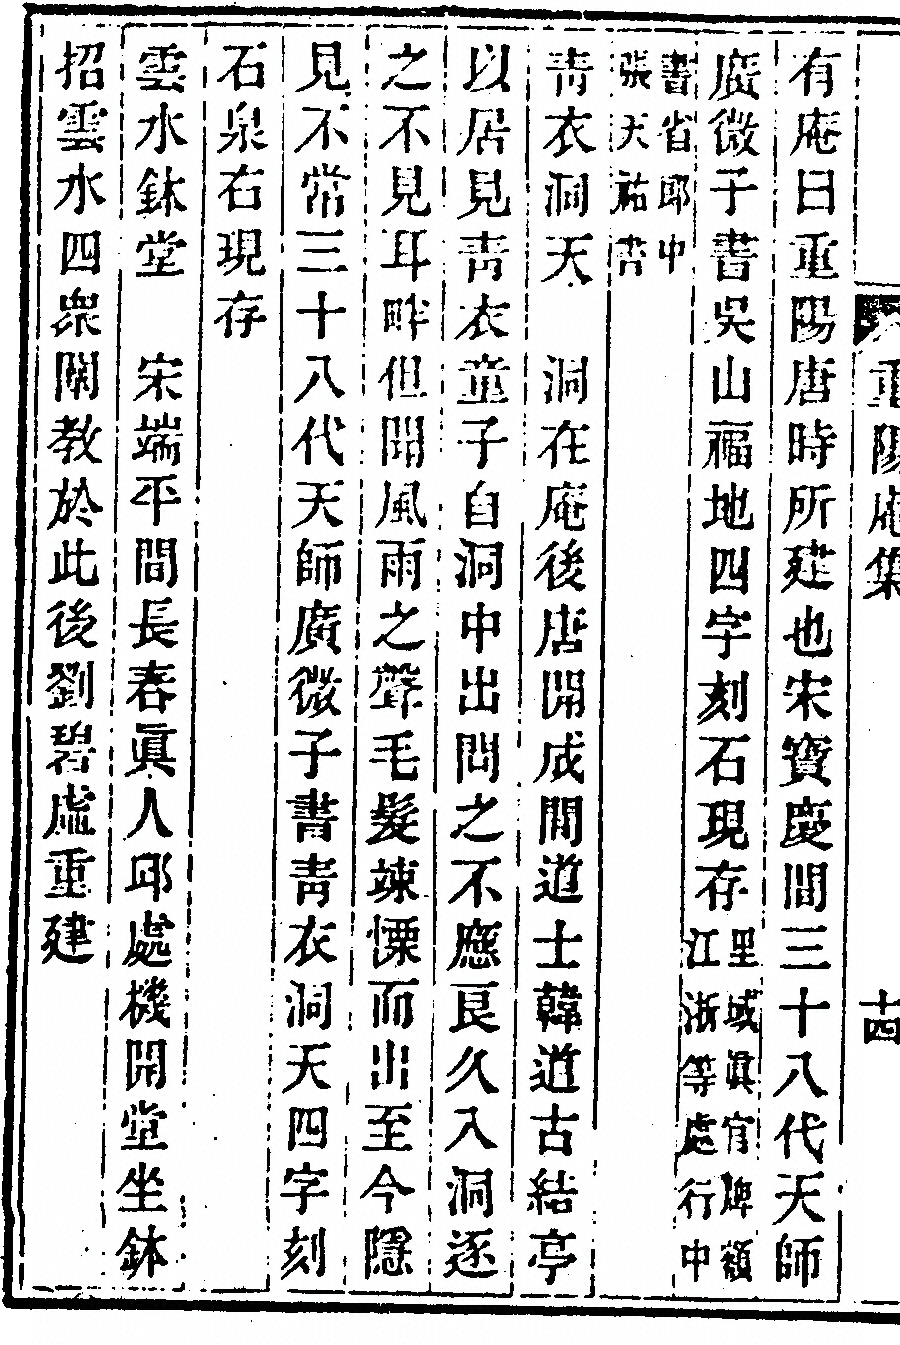 重陽庵集
十四
有庵日重陽唐時所建也宋寶慶間三十八代天師
廣微子書吳山福地四字刻石現存里域眞官牌額江浙等處行中
書省郎中張天祐書
靑衣洞天　洞在庵後唐開成間道士韓道古結亭
以居見靑衣童子自洞中出問之不應良久入洞逐
之不見耳畔但聞風雨之聲毛髮竦慄而出至今隱
見不常三十八代天師廣微子書靑衣洞天四字刻
石泉右現存
雲水鉢堂　宋端平間長春眞人邱處機開堂坐鉢
招雲水四眾闡教於此後劉碧虛重建